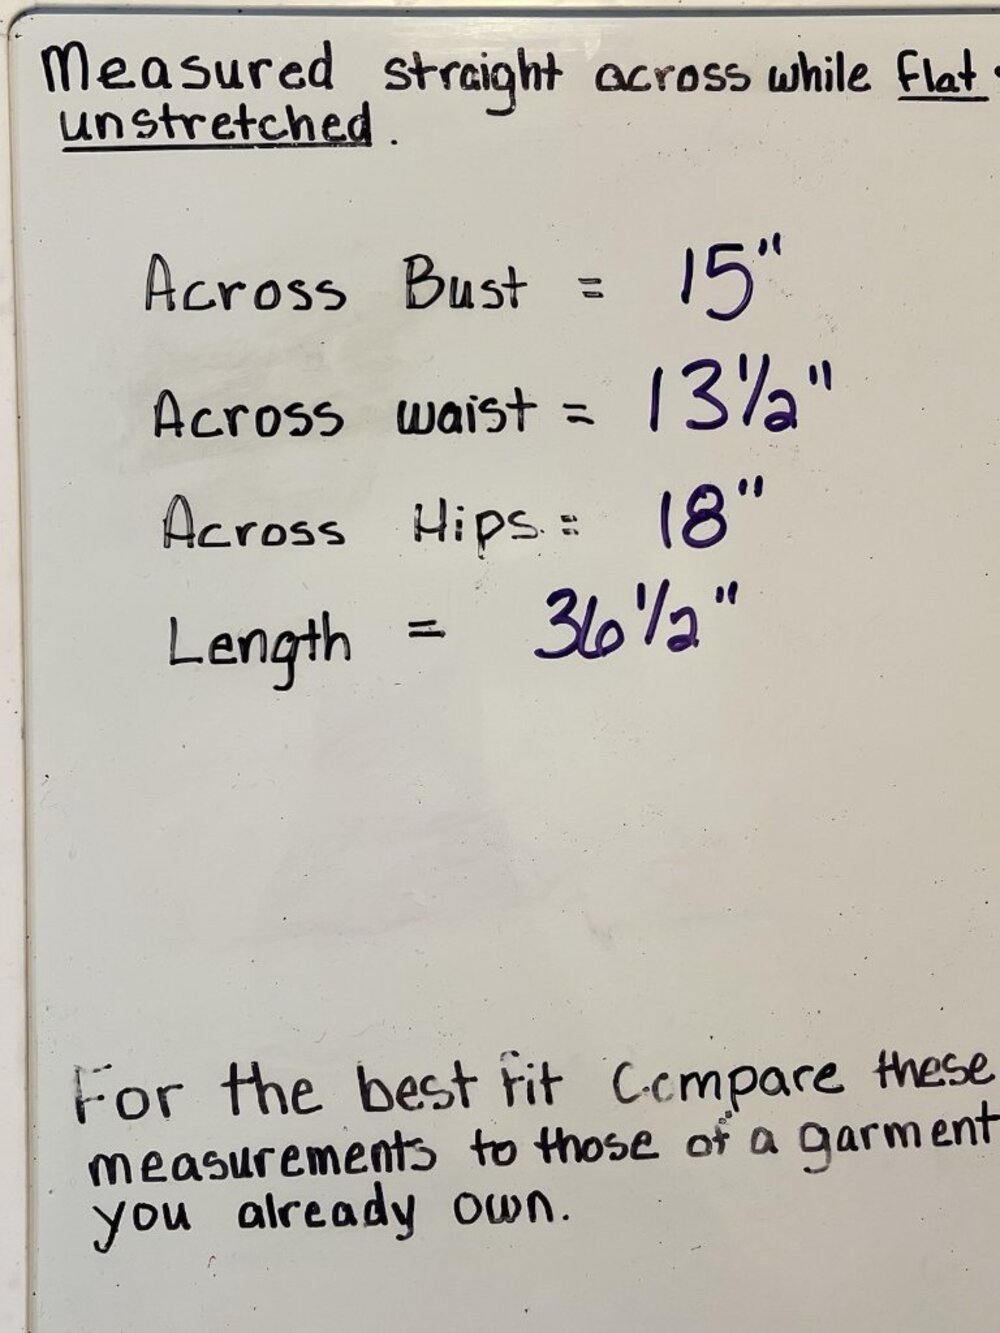 Measured straight across while flat
unstretched.
Across Bust = 15"
Across waist = 13½"
Across Hips = 18"
Length = 36½"
For the best fit Compare these
measurements to those of a garment
you already own.